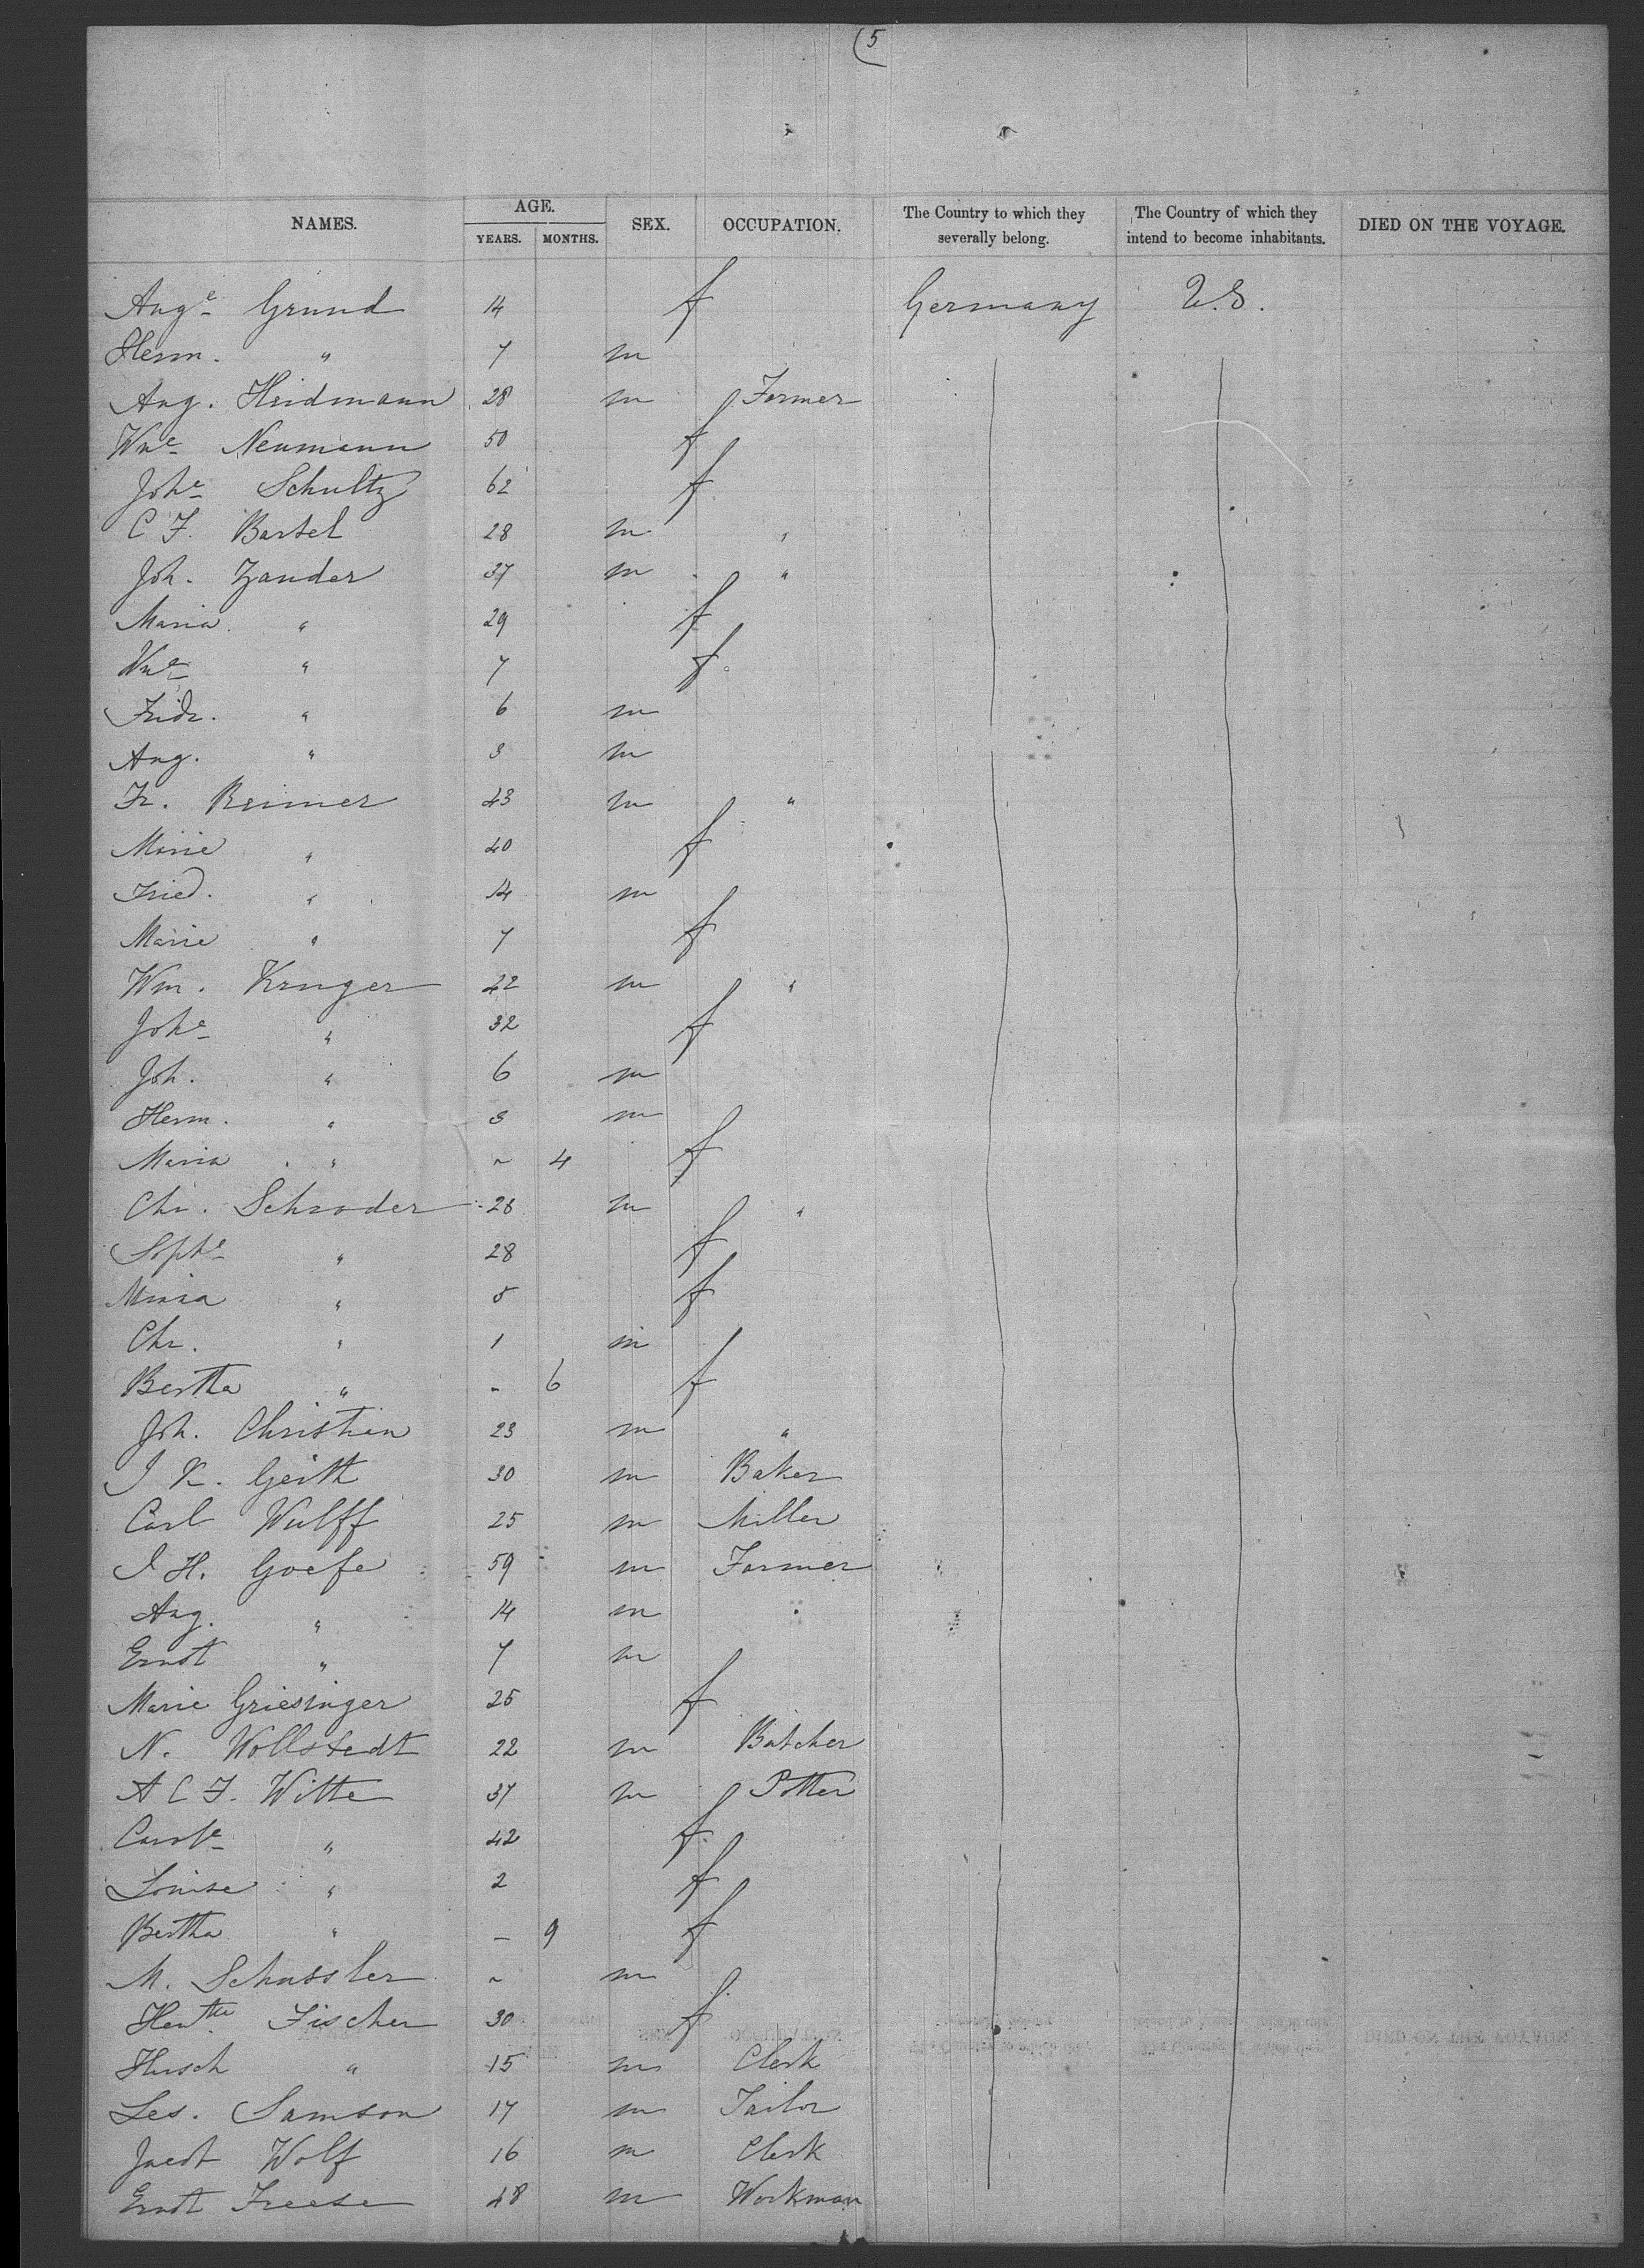 (5
NAMES. AGE. YEARS. MONTHS. SEX. OCCUPATION. The Country to which they severally belong. The Country of which they intend to become inhabitants. DIED ON THE VOYAGE.
Auge Grund 14 f Germany U.S.
Herm. " 7 m
Aug. Heidmann 28 m Farmer
Wme Neumann 50 f
Johe Schultz 62 f
C F. Bartel 28 m "
Joh. Zander 37 m "
Maria " 29 f
Wme " 7 f
Fridr. " 6 m
Aug. " 3 m
Fr. Reimer 43 m "
Marie " 40 f
Fried. " 14 m
Marie " 7 f
Wm. Kruger 42 m "
Johe " 32 f
Joh. " 6 m
Herm. " 3 m
Maria " ~ 4 f
Chr. Schroder 28 m "
Sophe " 28 f
Maria " 5 f
Chr. " 1 m
Bertha " - 6 f
Joh. Christian 23 m "
J K. Geith 30 m Baker
Carl Wulff 25 m Miller
J H. Goefe 59 m Farmer
Aug. " 14 m
Ernst " 7 m
Marie Griesinger 25 f
N. Wollstedt 22 m Butcher
A C F. Witte 37 m Potter
Carole " 42 f
Louise " 2 f
Bertha " — 9 f
M. Schussler ~ m
Hentte Fischer 30 f
Hirsch " 15 m Clerk
Les. Samson 17 m Tailor
Wolf 16 m Clerk
Ernst Freese 48 m Workman